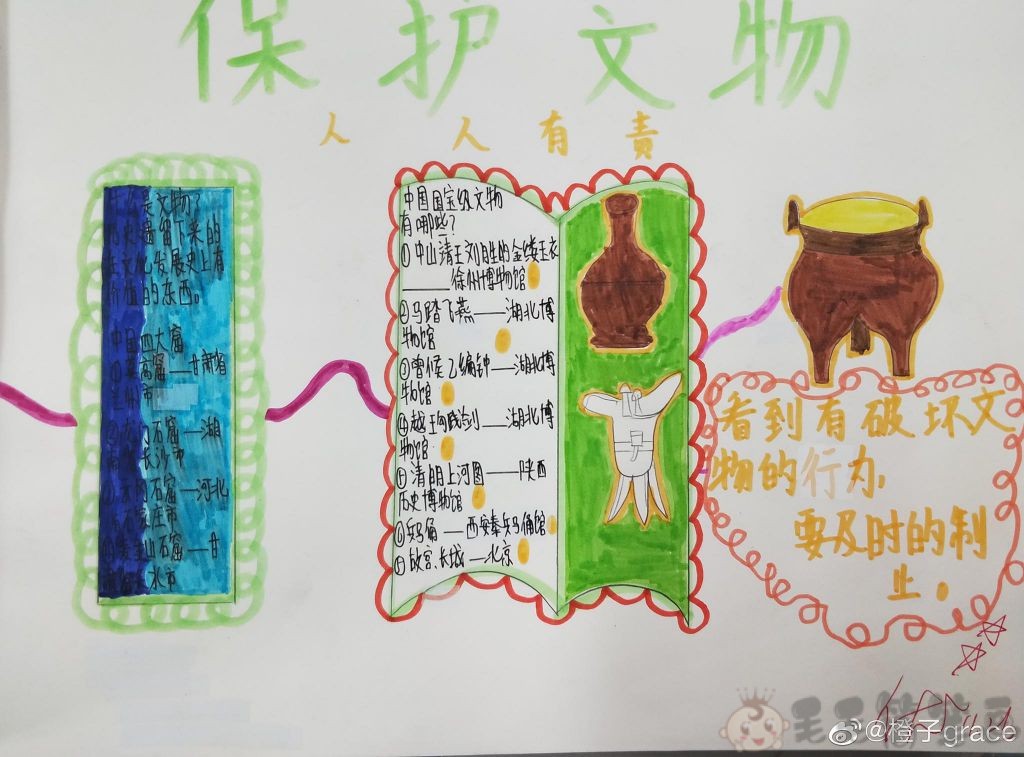 保护文物
人人有责
什么是文物？
历史遗留下来的
在文化发展史上有
价值的东西。
中国四大窟
高窟——甘肃省
市
石窟——湖
长沙市
石窟——河北
家庄市
山石窟——甘
水市
中国国宝级文物
有哪些？
①中山清王刘胜的金缕玉衣
——徐州博物馆
②马踏飞燕——湖北博
物馆
③曾候乙编钟——湖北博
物馆
④越王勾践剑——湖北博
物馆
⑤清明上河图——陕西
历史博物馆
⑥兵马俑——西安秦兵马俑馆
⑦故宫、长城——北京
看到有破坏文
物的行为，
要及时的制
止。
@橙子grace